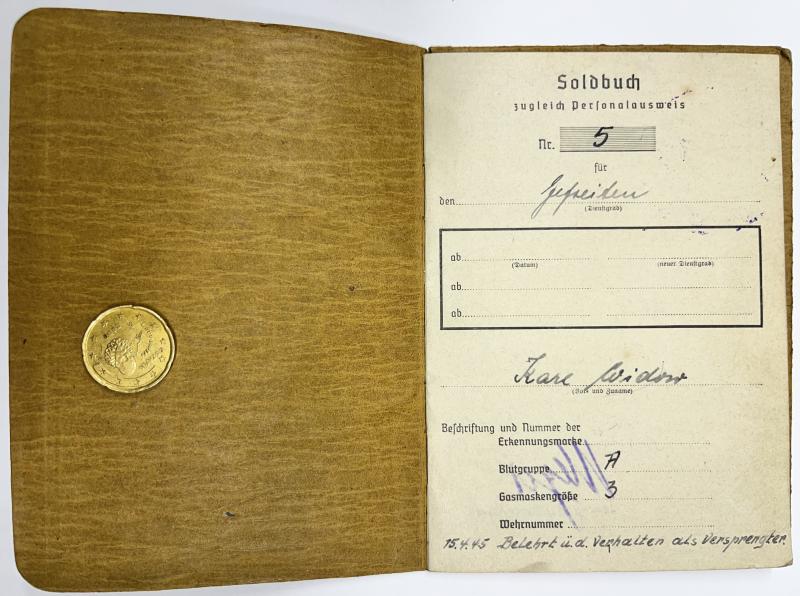 Soldbuch
zugleich Personalausweis
Nr. 5
für
den Gefreiten
(Dienstgrad)
ab
(Datum) (neuer Dienstgrad)
ab
ab
Karl Widow
(Vor- und Zuname)
Beschriftung und Nummer der
Erkennungsmarke
Blutgruppe A
Gasmaskengröße 3
Wehrnummer
15.4.45 Belehrt ü.d. Verhalten als Versprengter.